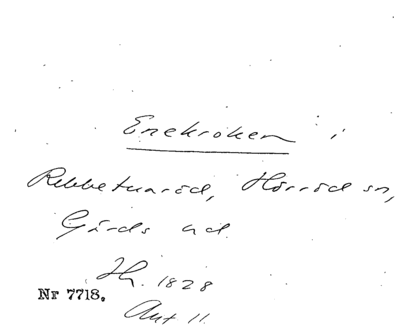 Enekroken i
Rebbetuaröd, Hörröd sn,
Gärds hd
Hfl. 1828
Nr 7718.
Akt 11